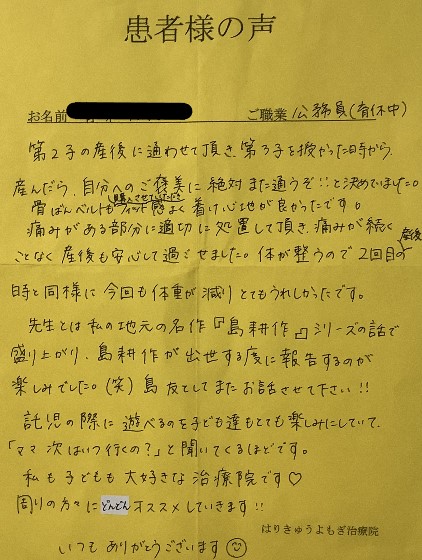 患者様の声
お名前
ご職業 公務員(育休中)
第2子の産後に通わせて頂き、第3子を授かった時から、
産んだら、自分へのご褒美に絶対また通うぞ!!と決めていました。
購入させていただき
骨ばんベルトもフィット感よく着け心地が良かったです。
痛みがある部分に適切に処置して頂き、痛みが続く
ことなく産後も安心して過ごせました。体が整うので2回目の産後
時と同様に今回も体重が減りとてもうれしかったです。
先生とは私の地元の名作『島耕作』シリーズの話で
盛り上がり、島耕作が出世する度に報告するのが
楽しみでした。(笑)島友としてまたお話させて下さい!!
託児の際に遊べるのを子ども達もとても楽しみにしていて、
「ママ次はいつ行くの?」と聞いてくるほどです。
私も子どもも大好きな治療院です♡
周りの方々にどんどんオススメしていきます!!
はりきゅうよもぎ治療院
いつもありがとうございます